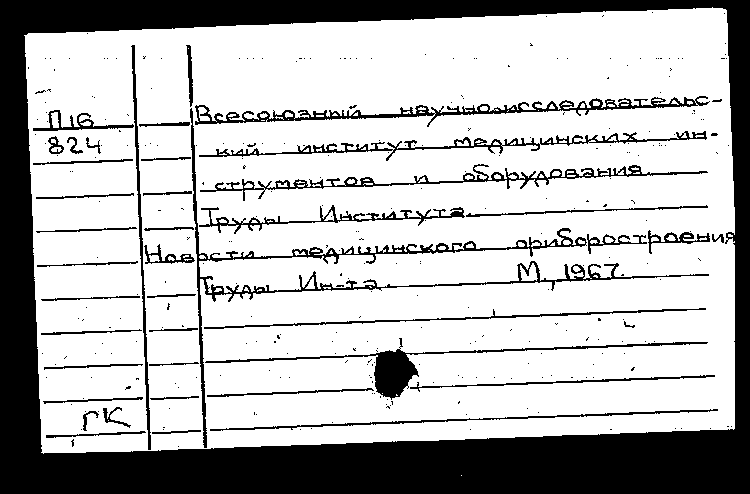 П16 Всесоюзный научно-исследовательс-
824 кий институт медицинских ин-
струментов и оборудования.
Труды Института.
Новости медицинского приборостроения
Труды Ин-та. М., 1967.
ГК